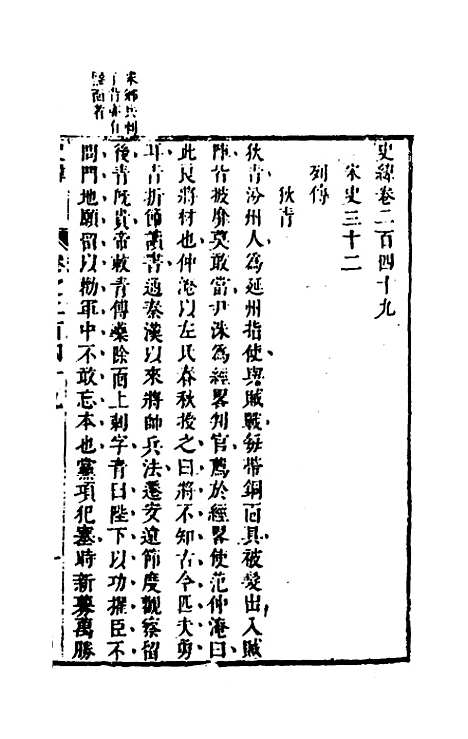 史緯卷二百四十九
宋史三十二
列傳
狄青
狄青汾州人為延州指使與賊戰每帶銅面具被髮出入賊
陣皆披靡莫敢當尹洙為經畧判官薦於經畧使范仲淹曰
此良將材也仲淹以左氏春秋授之曰將不知古今匹夫勇
耳青折節讀書通秦漢以來將帥兵法遷安遠節度觀察留
後青既貴帝敕青傅藥除面上刺字青曰陛下以功擢臣不
問門地願留以勸軍中不敢忘本也黨項犯塞時新募萬勝
宋鄉兵刺
者